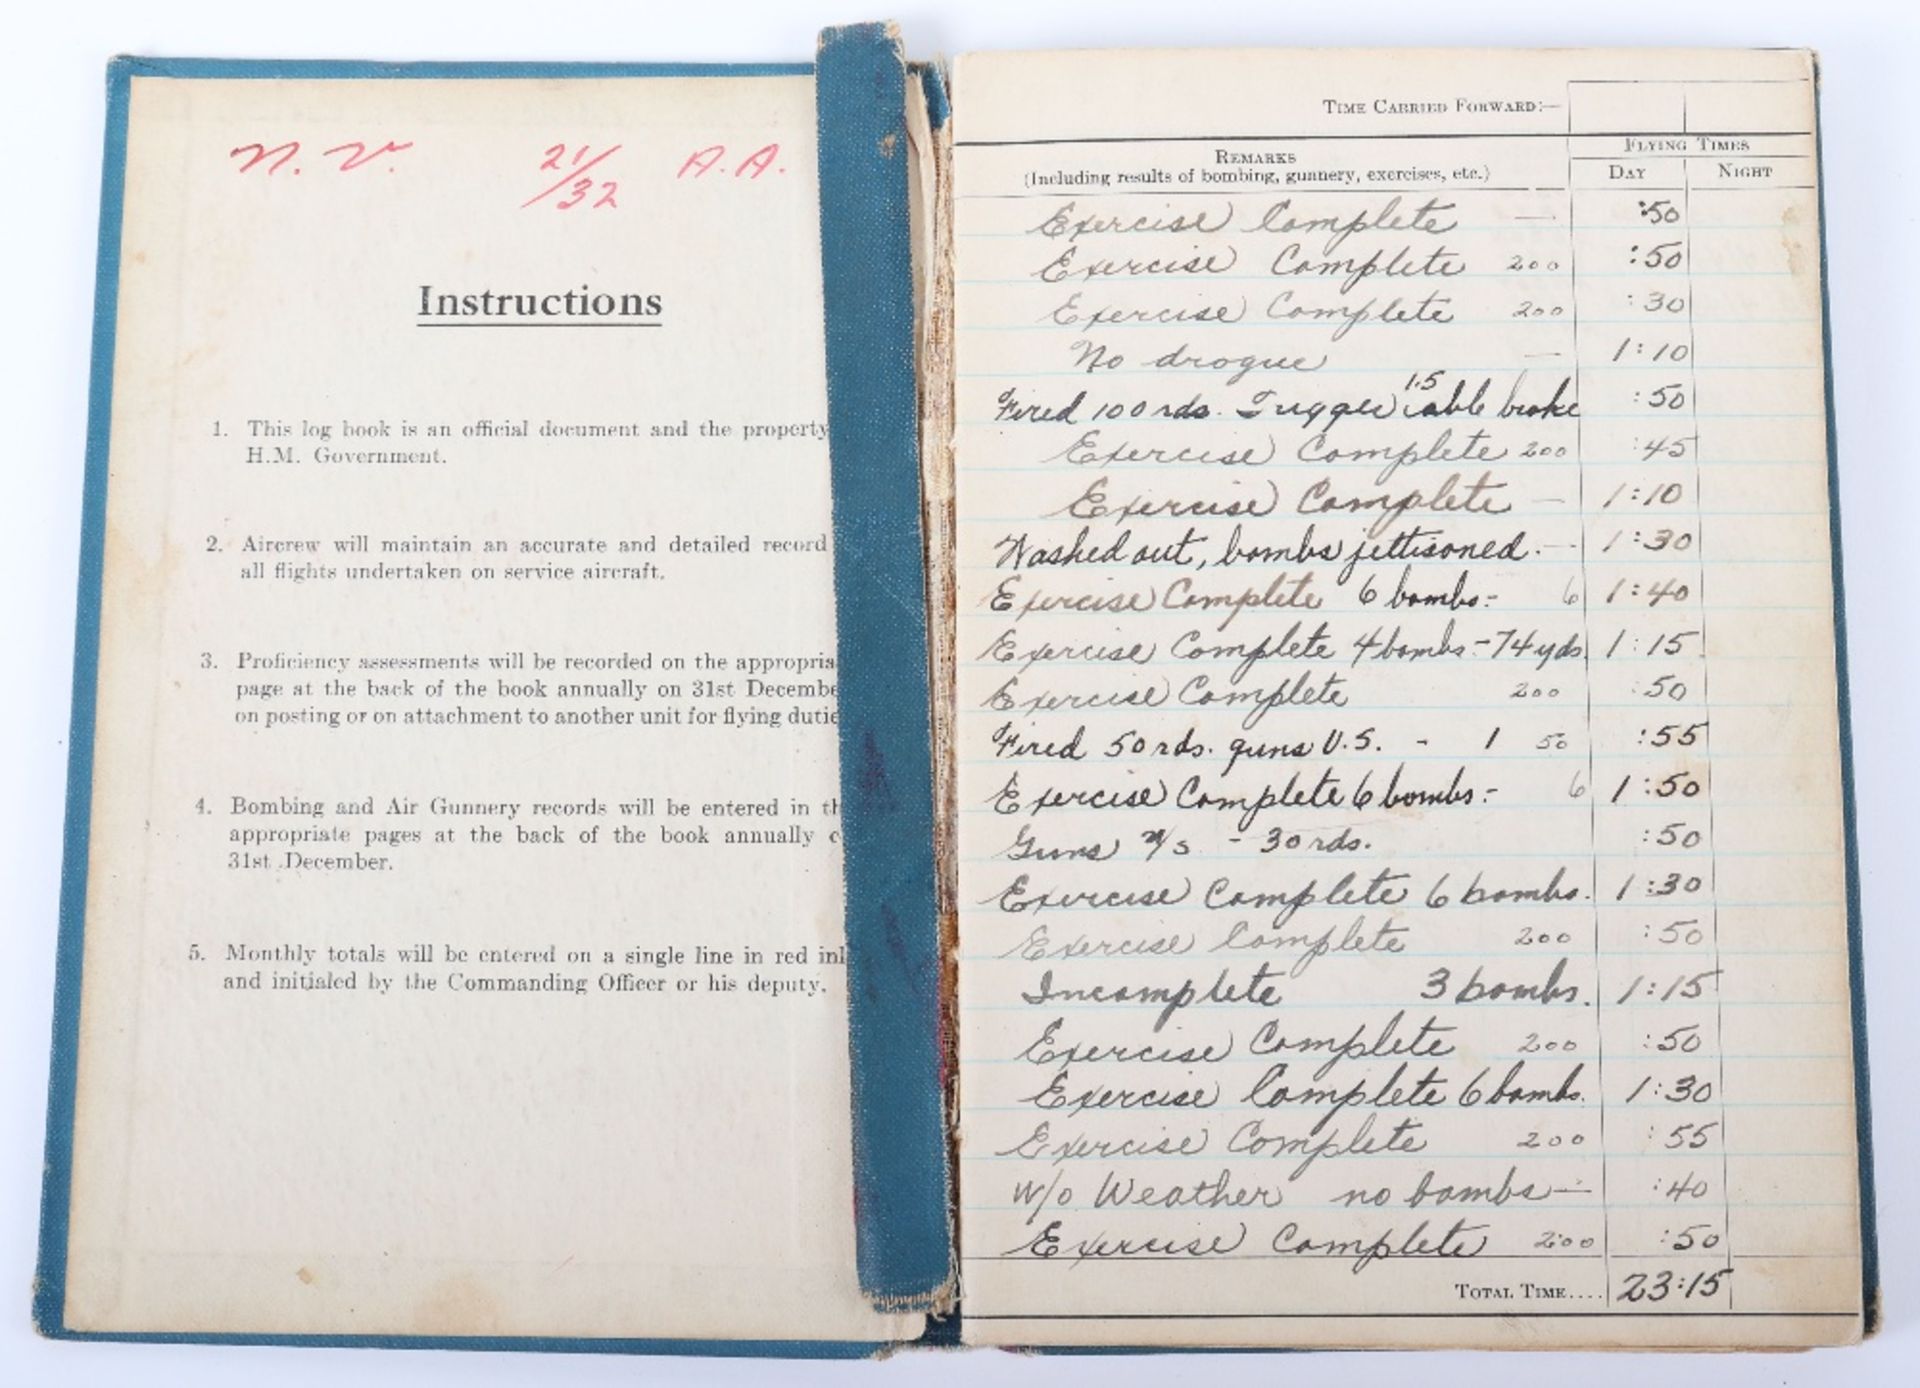 N. V. 21/32 A. A.
Instructions
1. This log book is an official document and the property
H.M. Government.
2. Aircrew will maintain an accurate and detailed record
all flights undertaken on service aircraft.
3. Proficiency assessments will be recorded on the appropria
page at the back of the book annually on 31st Decembe
on posting or on attachment to another unit for flying dutie
4. Bombing and Air Gunnery records will be entered in th
appropriate pages at the back of the book annually
31st December.
5. Monthly totals will be entered on a single line in red in
and initialed by the Commanding Officer or his deputy.
TIME CARRIED FORWARD:—
REMARKS
(Including results of bombing, gunnery, exercises, etc.)
FLYING TIMES
DAY NIGHT
Exercise Complete — :50
Exercise Complete 200 :50
Exercise Complete 200 :30
No drogue — 1:10
1.5
Fired 100 rds. Trigger cable broke :50
Exercise Complete 200 :45
Exercise Complete — 1:10
Washed out, bombs jettisoned. — 1:30
Exercise Complete 6 bombs:- 6 1:40
Exercise Complete 4 bombs:- 74 yds. 1:15
Exercise Complete 200 :50
Fired 50 rds. guns U.S. - 1 50 :55
Exercise Complete 6 bombs:- 6 1:50
Guns u/s - 30 rds. :50
Exercise Complete 6 bombs. 1:30
Exercise Complete 200 :50
Incomplete 3 bombs. 1:15
Exercise Complete 200 :50
Exercise Complete 6 bombs. 1:30
Exercise Complete 200 :55
w/o Weather no bombs — :40
Exercise Complete 200 :50
TOTAL TIME.... 23:15